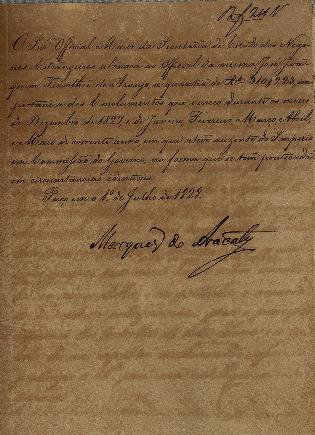 O Snr Official Maior da Secretaria de Estado dos Nego-
cios Estrangeiros abonará ao Official da mesma Joaquim
Timotheo de Araujo, a quantia de Rs 310$223, im-
portancia dos Emolumentos que venceo durante os mezes
de Dezembro de 1827, e de Janeiro, Fevereiro, Março, Abril,
e Maio do corrente anno em que esteve auzente do Imperio
em Commissão do Governo, na forma que se tem praticado
em circunstancias identicas.
Paço em o 1º de Julho de 1828.
Marquez do Aracaty